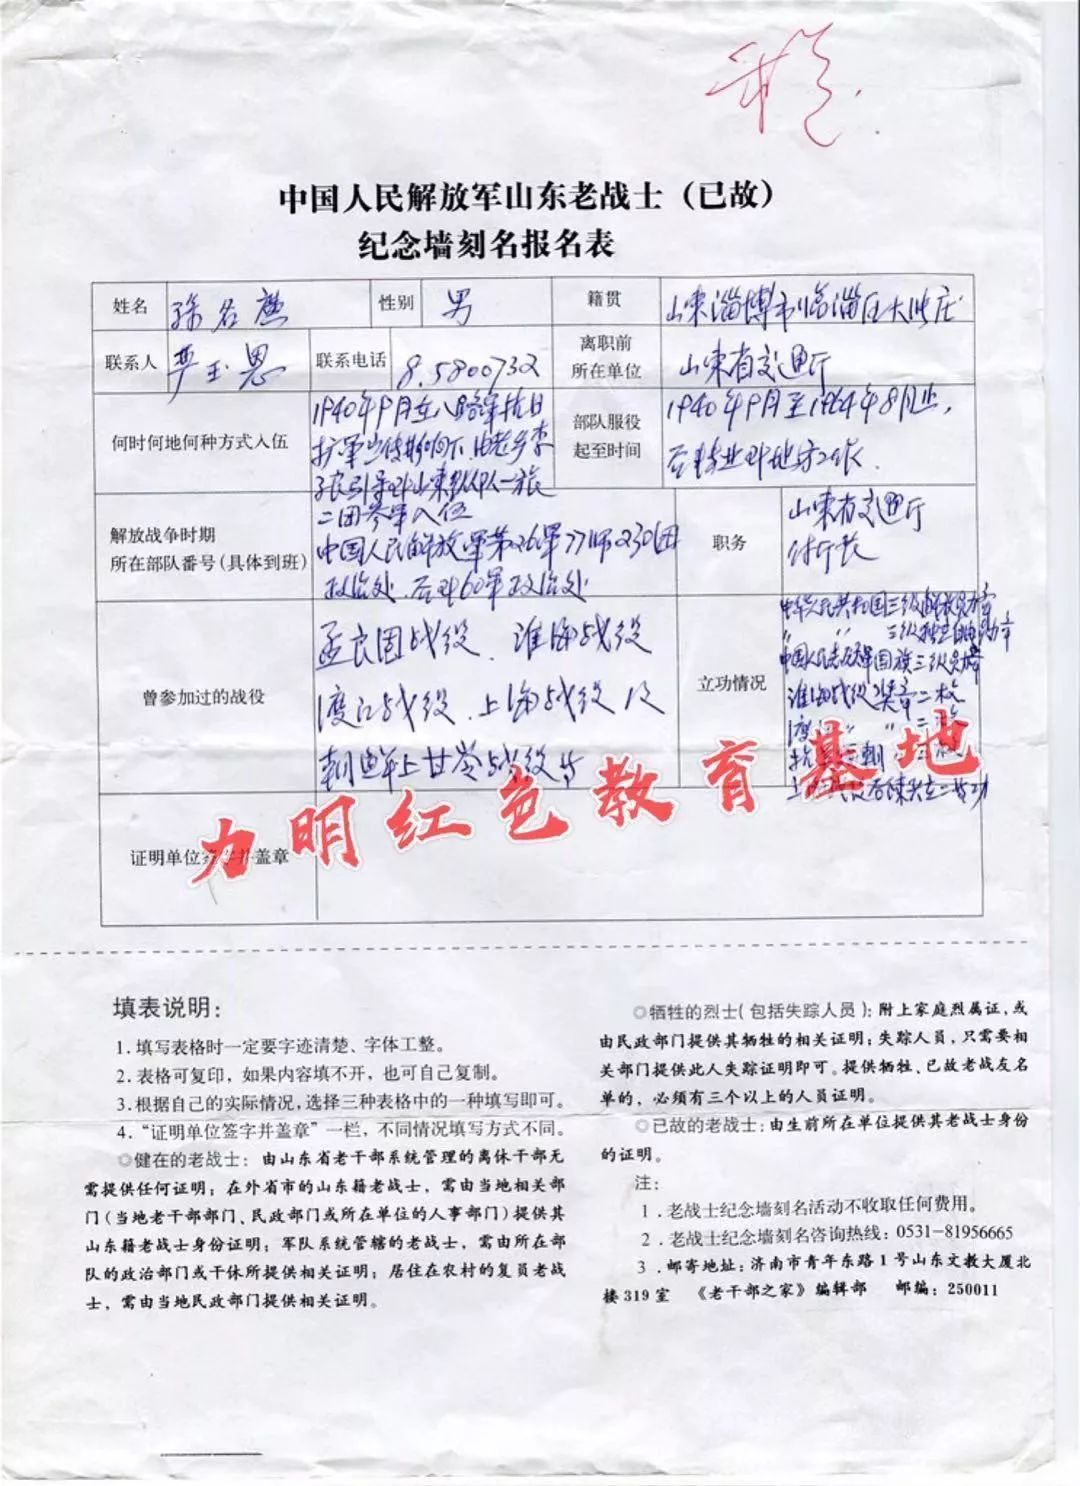 中国人民解放军山东老战士（已故）
纪念墙刻名报名表
姓名 孙名 性别 男 籍贯 山东淄博市临淄区大 庄
联系人 严玉恩 联系电话 8.5800732 离职前所在单位 山东省交通厅
何时何地何种方式入伍
1940年9月在八路军抗日
扩军宣传影响下，由老乡李
引导到山东纵队一旅
二团参军入伍
部队服役
起至时间
1940年9月至1964年8月止，
后转业到地方工作.
解放战争时期
所在部队番号(具体到班)
中国人民解放军第26军77师230团
政治处.后到60军政治处
职务
山东省交通厅
付厅长
曾参加过的战役
孟良固战役、淮海战役
渡江战役、上海战役及
朝鲜上甘岭战役等
立功情况
中华人民共和国三级解放勋章
〃 〃 三级独立自由勋章
中国人民志愿军国旗三级勋章
淮海战役奖章二枚
渡 〃 二枚
抗 朝
上 战役后 立二等功
力明红色教育基地
证明单位签字并盖章
填表说明：
1. 填写表格时一定要字迹清楚、字体工整。
2. 表格可复印，如果内容填不开，也可自己复制。
3. 根据自己的实际情况，选择三种表格中的一种填写即可。
4. “证明单位签字并盖章”一栏，不同情况填写方式不同。
◎健在的老战士：由山东省老干部系统管理的离休干部无
需提供任何证明；在外省市的山东籍老战士，需由当地相关部
门(当地老干部部门、民政部门或所在单位的人事部门)提供其
山东籍老战士身份证明；军队系统管辖的老战士，需由所在部
队的政治部门或干休所提供相关证明；居住在农村的复员老战
士，需由当地民政部门提供相关证明。
◎牺牲的烈士(包括失踪人员)：附上家庭烈属证，或
由民政部门提供其牺牲的相关证明；失踪人员，只需要相
关部门提供此人失踪证明即可。提供牺牲、已故老战友名
单的，必须有三个以上的人员证明。
◎已故的老战士：由生前所在单位提供其老战士身份
的证明。
注：
1．老战士纪念墙刻名活动不收取任何费用。
2．老战士纪念墙刻名咨询热线：0531-81956665
3．邮寄地址：济南市青年东路1号山东文教大厦北
楼319室 《老干部之家》编辑部 邮编：250011